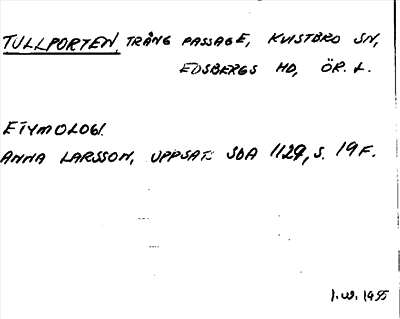 TULLPORTEN, TRÅNG PASSAGE, KVISTBRO SN,
EDSBERGS HD, ÖR. L.
ETYMOLOGI.
ANNA LARSSON, UPPSATS SOA 1129, S. 19 F.
1955